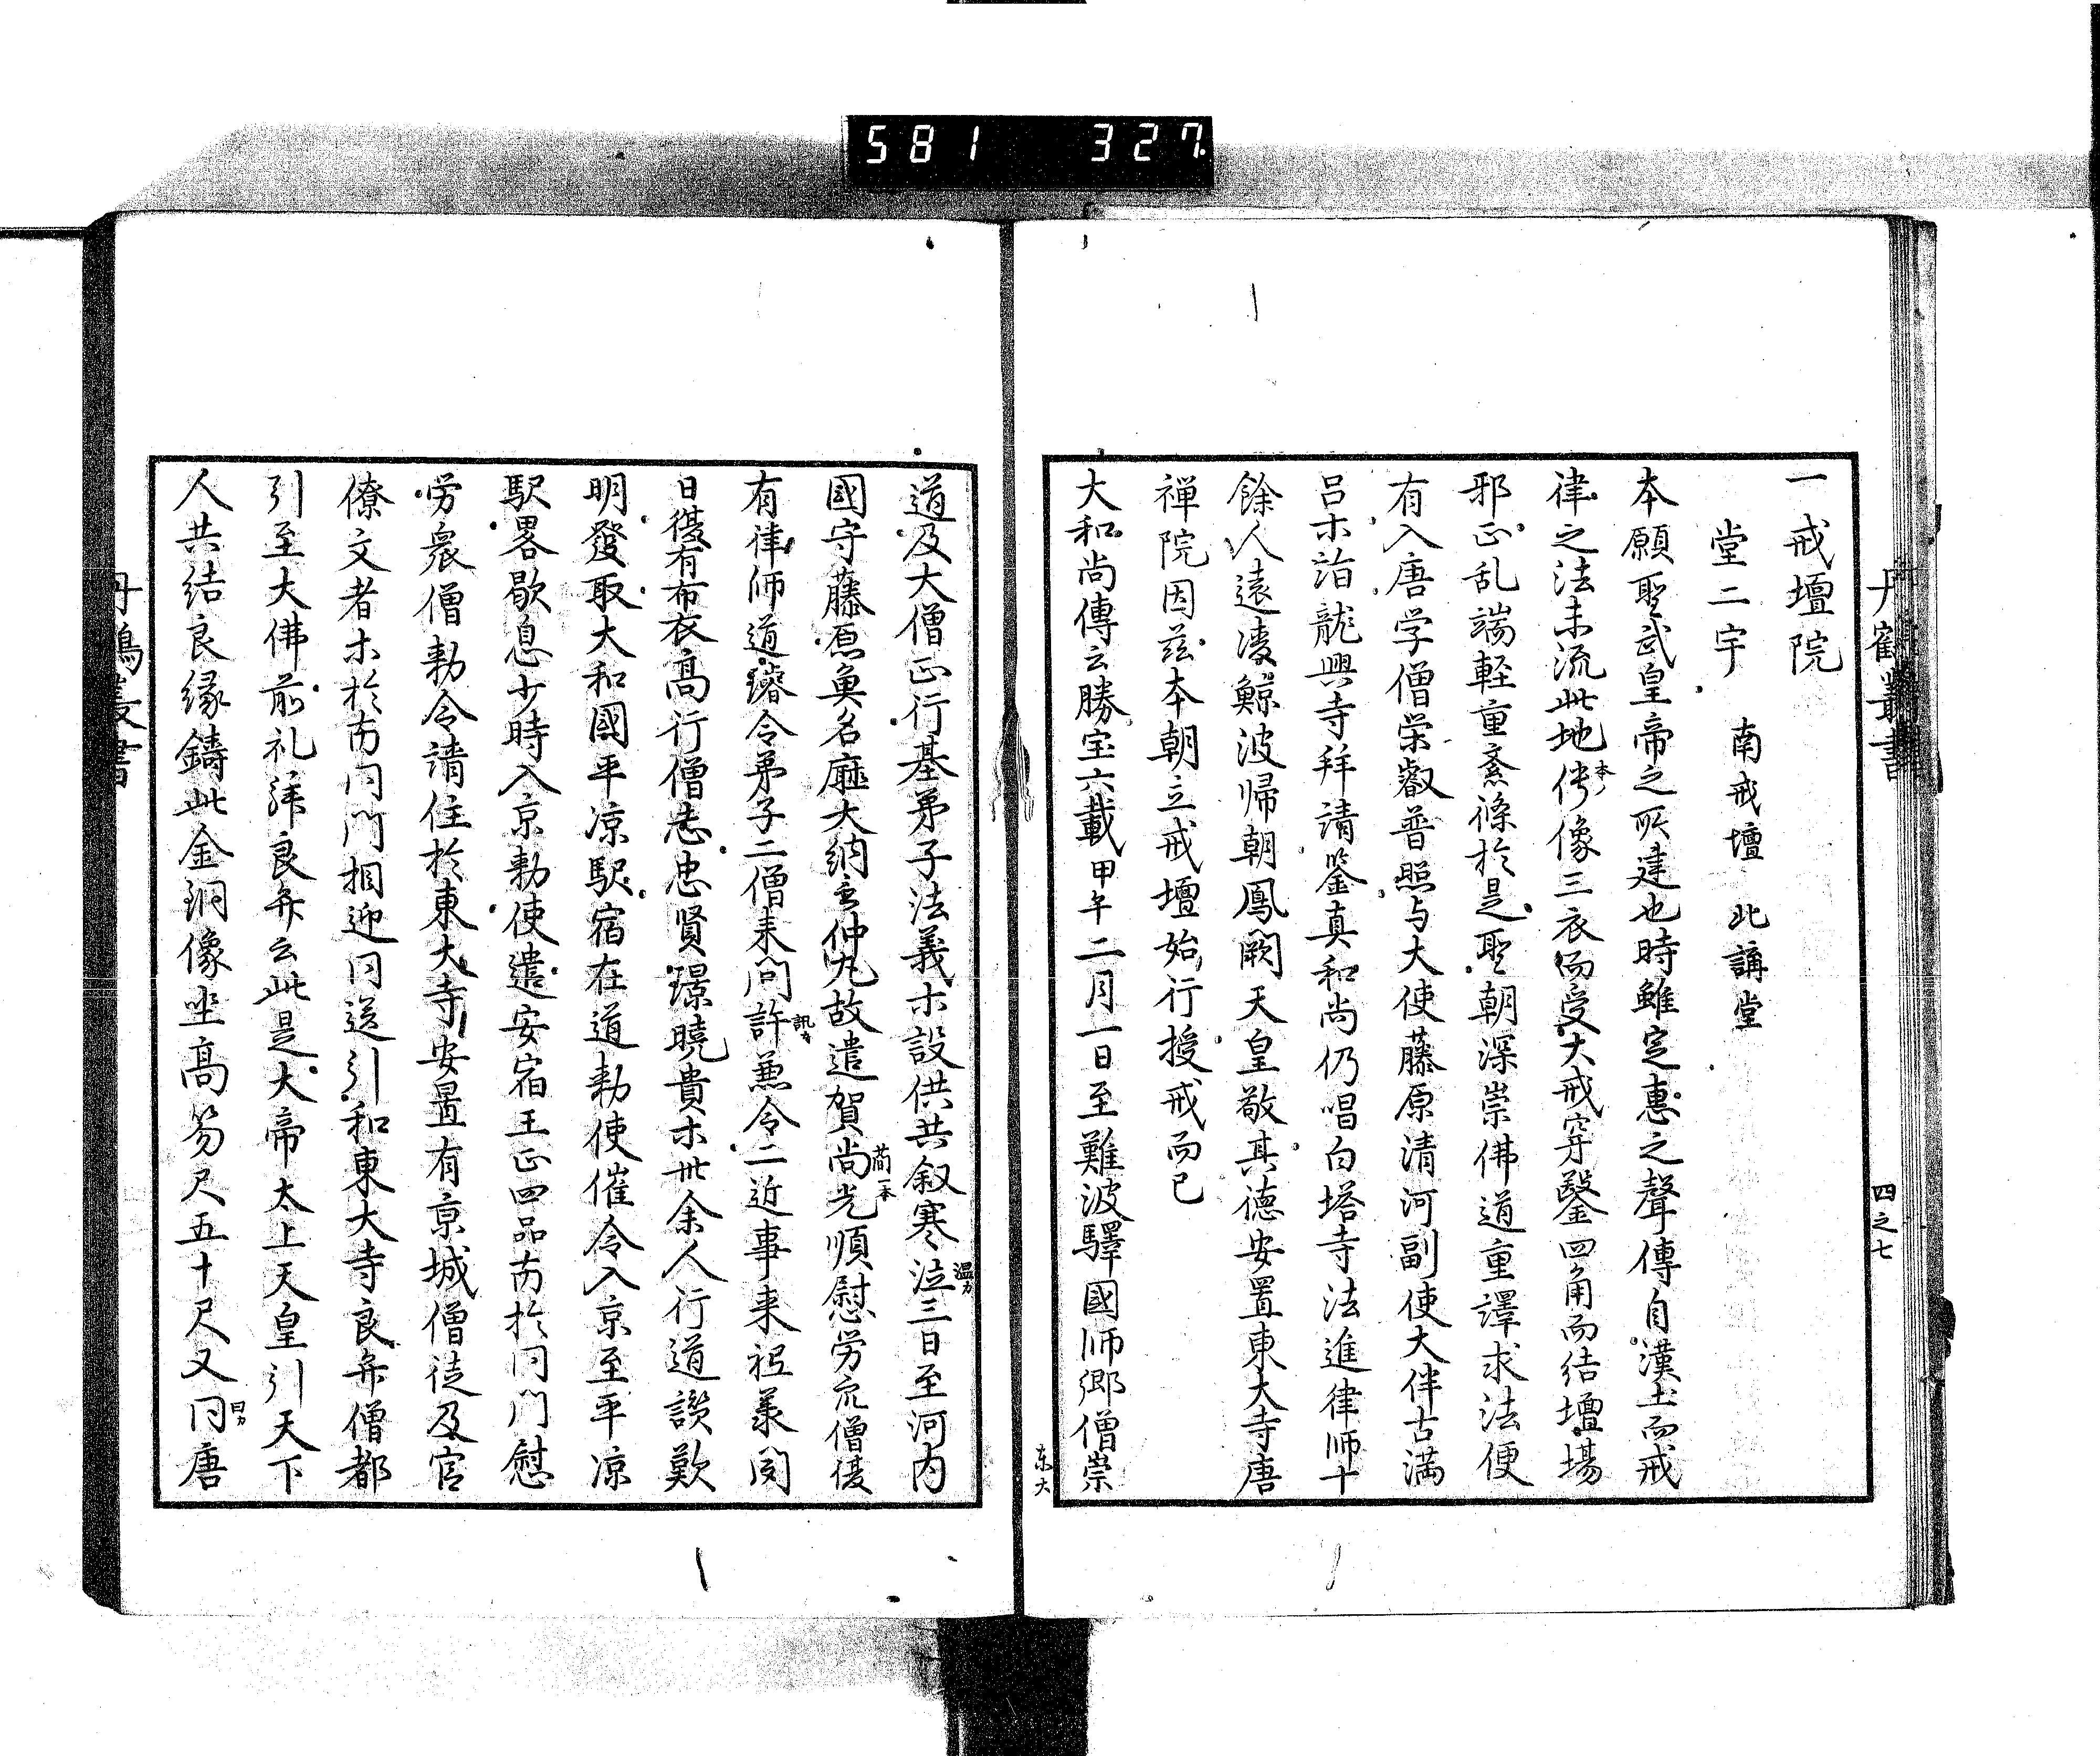 581 327
丹鶴叢書
四之七
一戒壇院
堂二宇 南戒壇 北講堂
本願聖武皇帝之所建也時雖定惠之聲傳自漢土而戒
律之法未流此地伝像三衣而受大戒穿鑿四角而結壇場
邪正乱端軽重紊條於是聖朝深崇佛道重譯求法便
有入唐学僧栄叡普照与大使藤原清河副使大伴古満
呂ホ詣龍興寺拜請鉴真和尚仍唱白塔寺法進律師十
餘人遠凌鯨波帰朝鳳闕天皇敬其德安置東大寺唐
禅院因茲本朝立戒壇始行授戒而已
大和尚傳云勝宝六載甲午二月一日至難波驛國师鄉僧崇
东大
道及大僧正行基弟子法義ホ設供共叙寒泣三日至河内
温カ
國守藤原魚名廰大納言仲丸故遣賀尚光順慰劳
蕳一本
有律师道璿令弟子二僧来問許兼令二近事来
訊カ
日復有布衣高行僧志忠賢璟曉貴ホ卅余人行道讃歎
明發取大和國平凉駅宿在道勅使催令入京至平凉
駅畧歇息少時入京勅使遣安宿王正四品於門慰
劳衆僧勅令請住於東大寺安置有京城僧徒及官
僚文者ホ於門相迎送引和東大寺良弁僧都
引至大佛前礼拜良弁云此是大帝太上天皇引天下
人共结良縁鑄此金銅像坐高笏尺五十尺又问唐
曰カ
丹鶴叢書